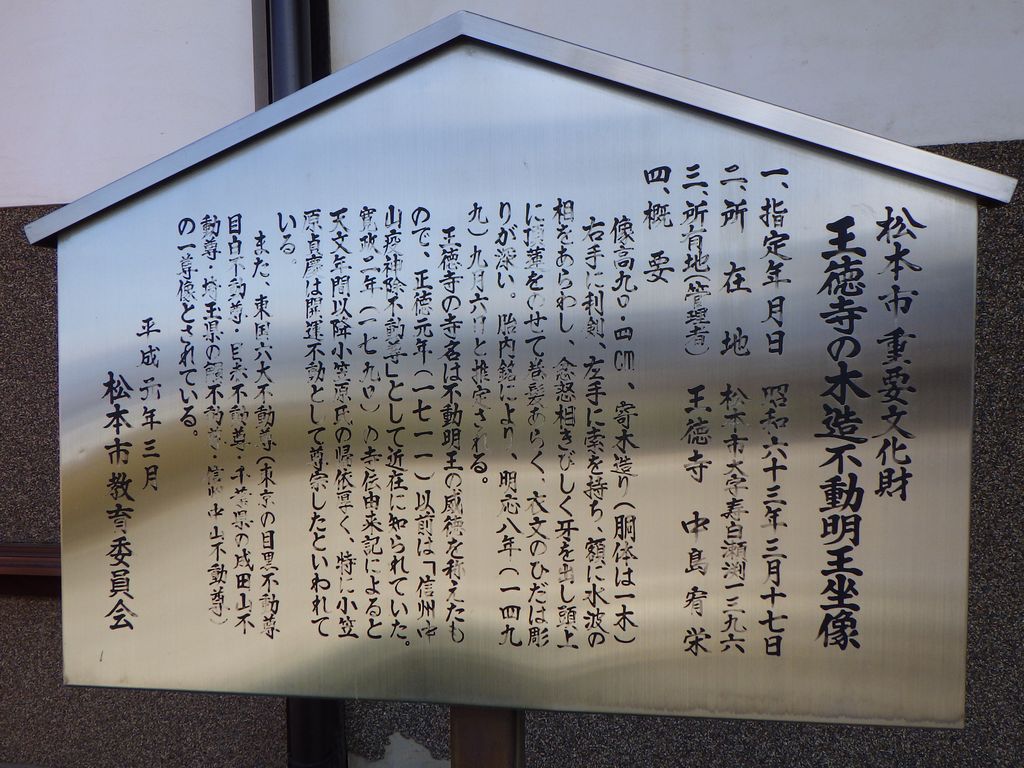 松本市重要文化財
王徳寺の木造不動明王坐像
一、指定年月日　昭和六十三年三月十七日
二、所在地　松本市大字寿白瀬渕一三九六
三、所有地(管理者)　王徳寺　中島宥栄
四、概要
像高九〇・四㎝、寄木造り(胴体は一木)
右手に利剣、左手に索を持ち、額に水波の
相をあらわし、忿怒相きびしく牙を出し頭上
に蓮をのせて巻髪あらく、衣文のひだは彫
りが深い。胎内銘により、明応八年(一四九
九)九月六日と推定される。
王徳寺の寺名は不動明王の威徳を称えたも
ので、正徳元年(一七一一)以前は「信州中
山疫神除不動尊」として近在に知られていた。
寛政二年(一七九〇)の寺伝由来記によると
天文年間以降小笠原氏の帰依厚く、特に小笠
原貞慶は開運不動として尊崇したといわれて
いる。
また、東国六大不動尊(東京の目黒不動尊
目白不動尊・目赤不動尊・千葉県の成田山不
動尊・埼玉県の不動尊・信州中山不動尊)
の一尊像とされている。
平成 年三月
松本市教育委員会